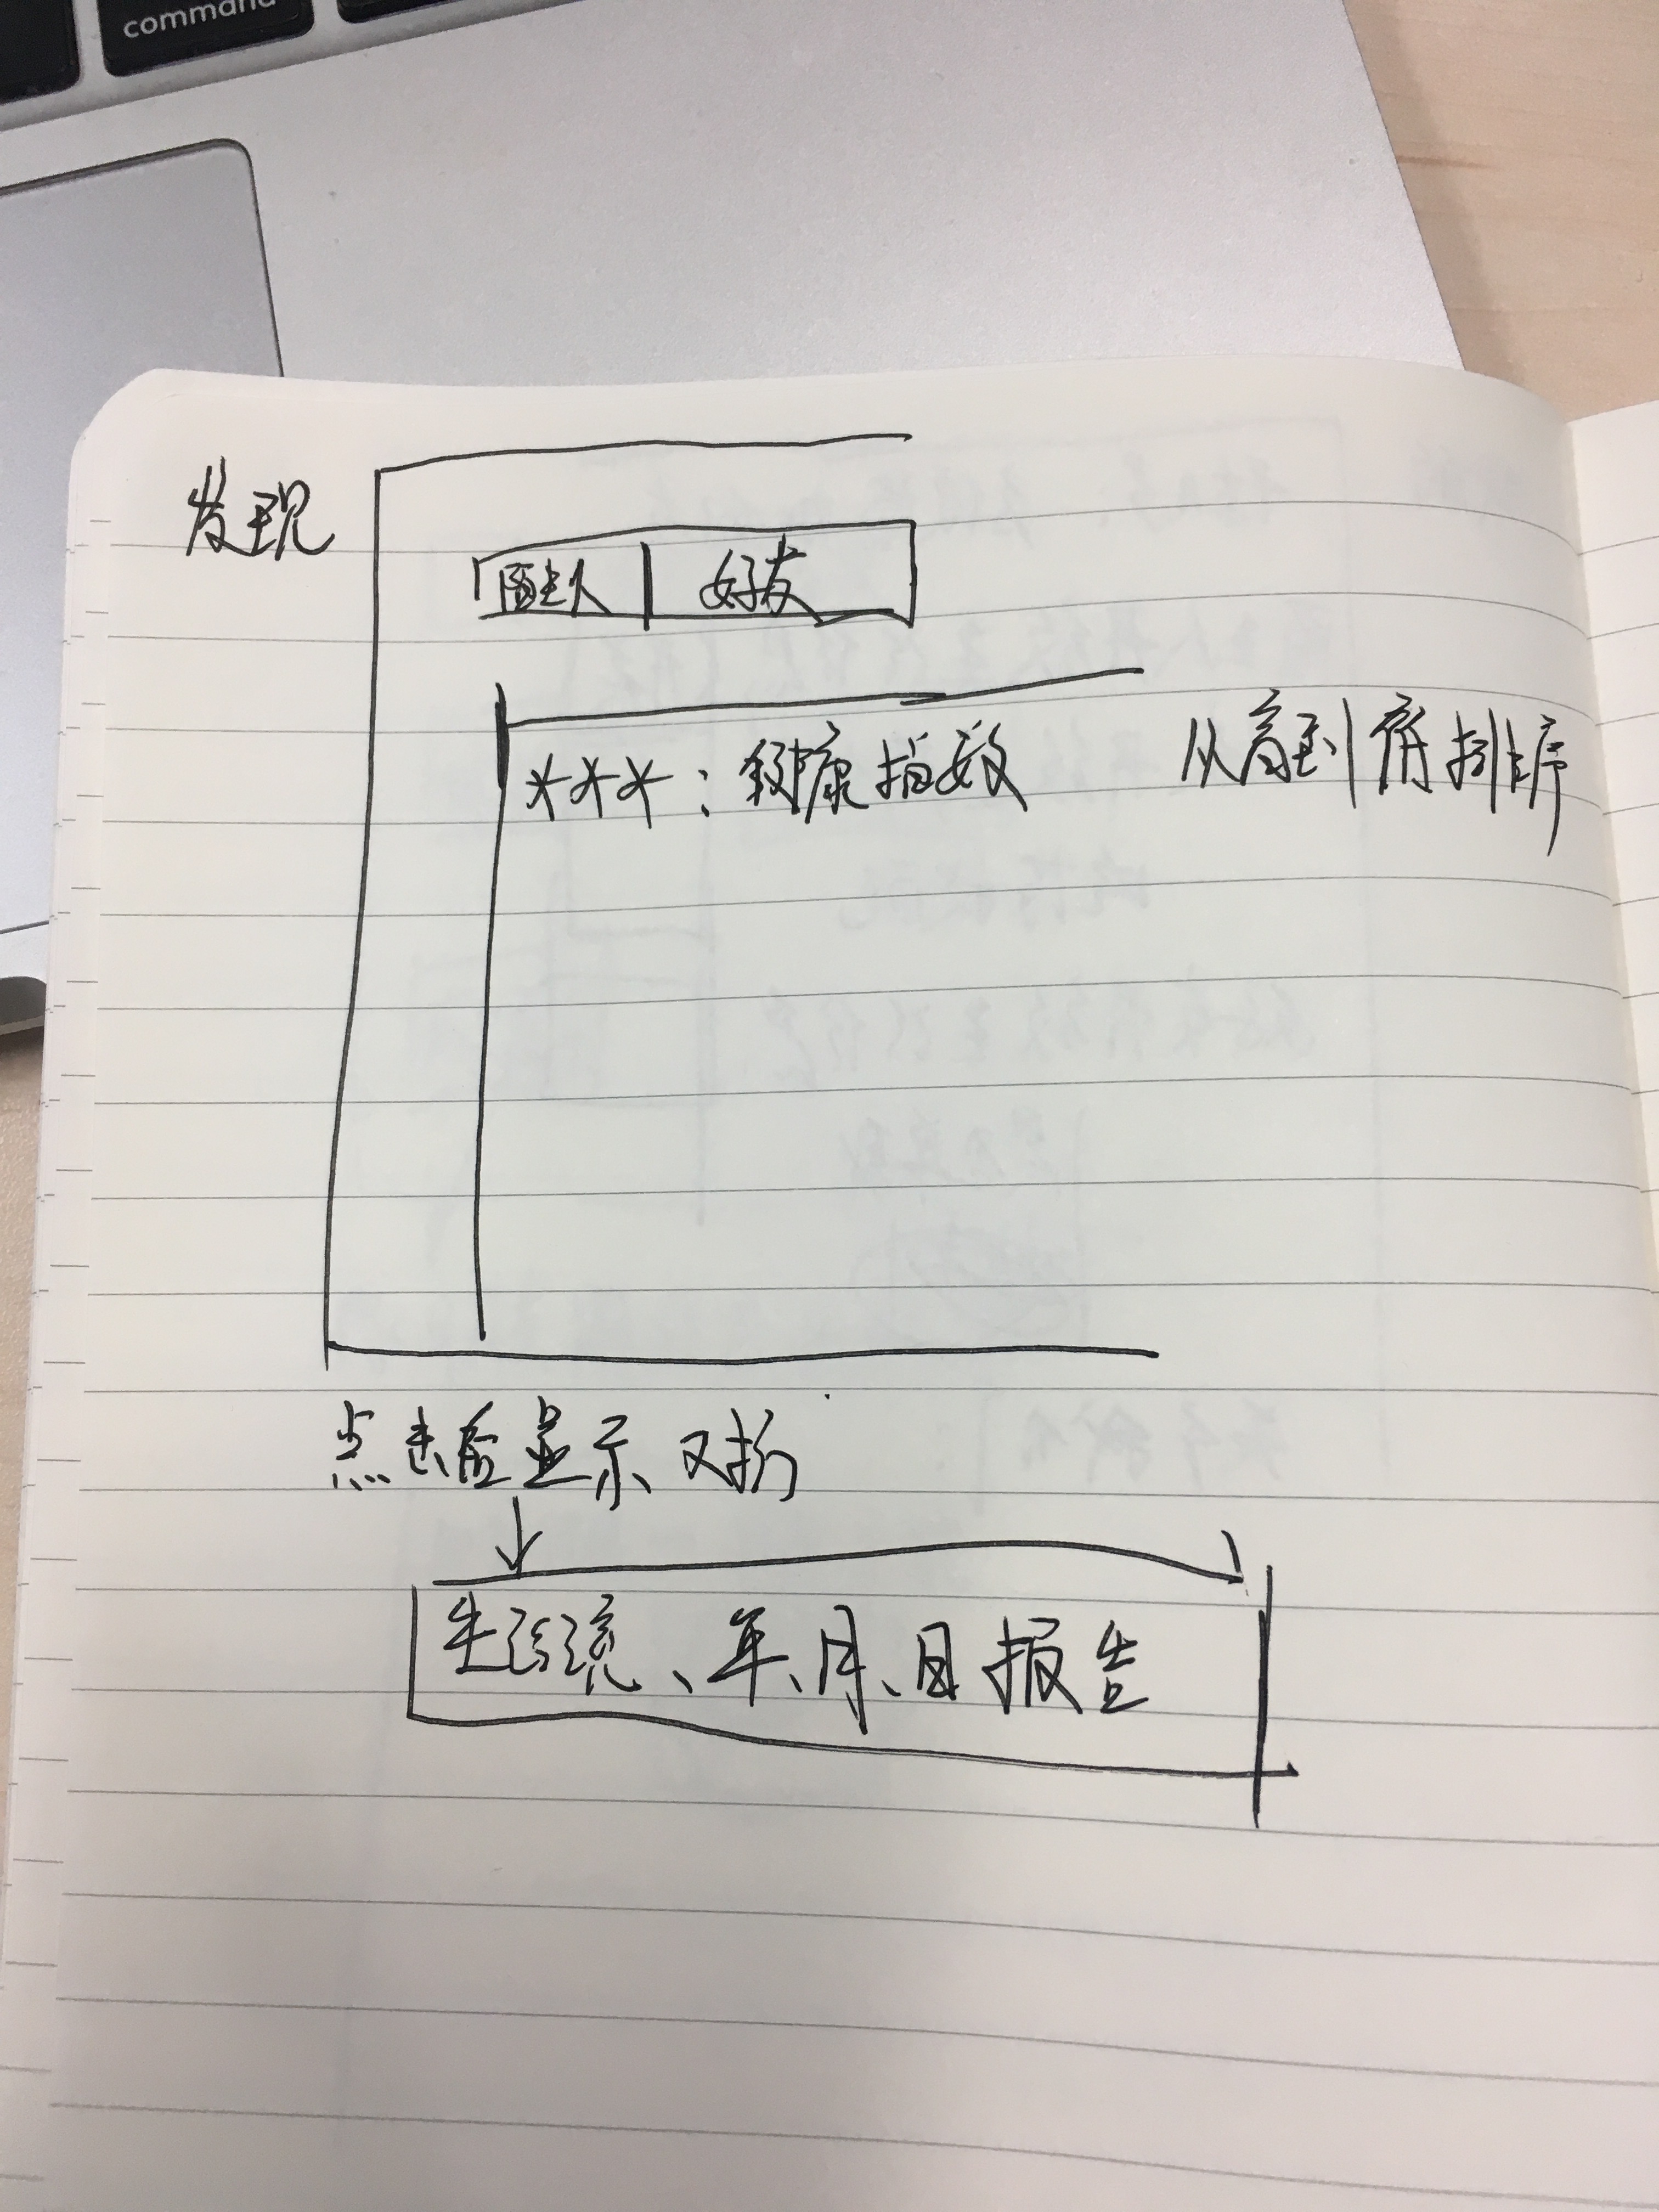 command
发现
陌生人 好友
***：健康指数 从高到底排序
点击后显示
生活流、年、月、日报告